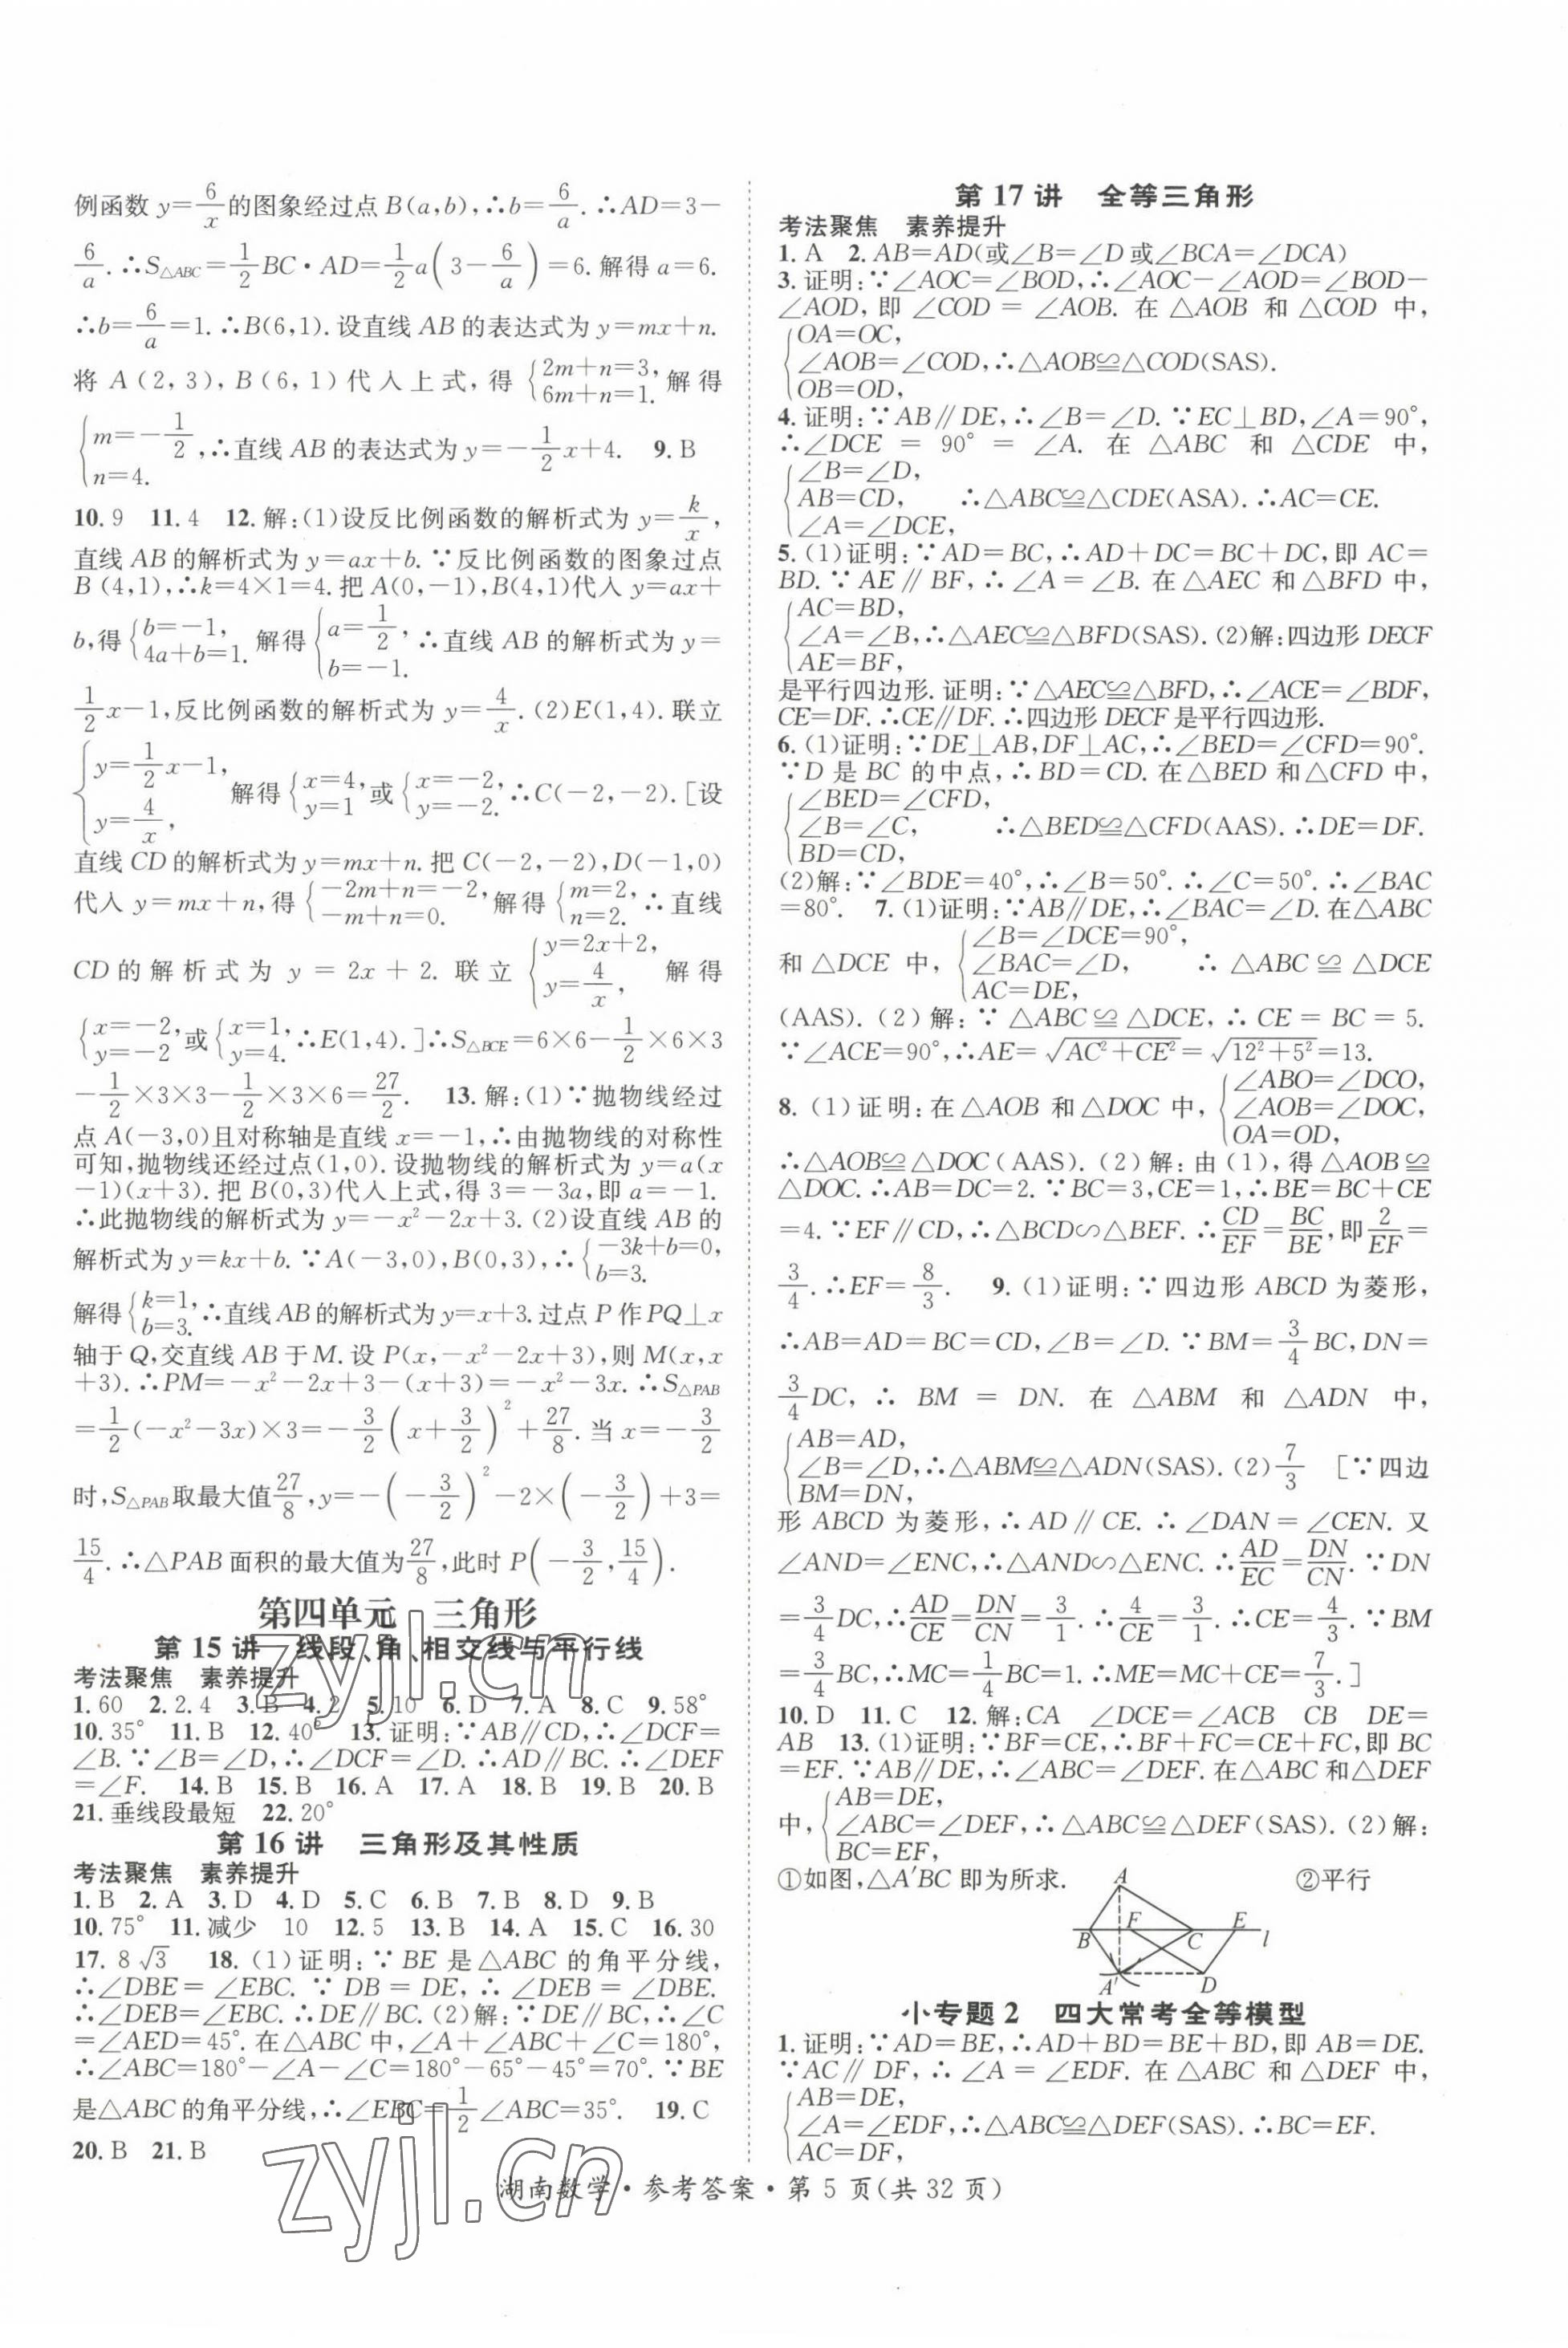 例函数 y=6/x的图象经过点 B(a,b),∴b=6/a.∴AD=3-
6/a.∴S△ABC=1/2BC·AD=1/2a(3-6/a)=6.解得 a=6.
∴b=6/a=1.∴B(6,1).设直线 AB 的表达式为 y=mx+n.
将 A(2,3),B(6,1)代入上式,得{2m+n=3, 6m+n=1.解得
{m=-1/2, n=4.∴直线 AB 的表达式为 y=-1/2x+4. 9.B
10.9 11.4 12.解:(1)设反比例函数的解析式为 y=k/x,
直线 AB 的解析式为 y=ax+b.∵反比例函数的图象过点
B(4,1),∴k=4×1=4.把 A(0,-1),B(4,1)代入 y=ax+
b,得{b=-1, 4a+b=1.解得{a=1/2, b=-1.∴直线 AB 的解析式为 y=
1/2x-1,反比例函数的解析式为 y=4/x.(2)E(1,4).联立
{y=1/2x-1, y=4/x,解得{x=4, y=1或{x=-2, y=-2.∴C(-2,-2).[设
直线 CD 的解析式为 y=mx+n.把 C(-2,-2),D(-1,0)
代入 y=mx+n,得{-2m+n=-2, -m+n=0.解得{m=2, n=2.∴直线
CD 的解析式为 y=2x+2.联立{y=2x+2, y=4/x,解得
{x=-2, y=-2或{x=1, y=4.∴E(1,4).]∴S△BCE=6×6-1/2×6×3
-1/2×3×3-1/2×3×6=27/2. 13.解:(1)∵抛物线经过
点 A(-3,0)且对称轴是直线 x=-1,∴由抛物线的对称性
可知,抛物线还经过点(1,0).设抛物线的解析式为 y=a(x
-1)(x+3).把 B(0,3)代入上式,得 3=-3a,即 a=-1.
∴此抛物线的解析式为 y=-x²-2x+3.(2)设直线 AB 的
解析式为 y=kx+b.∵A(-3,0),B(0,3),∴{-3k+b=0, b=3.
解得{k=1, b=3.∴直线 AB 的解析式为 y=x+3.过点 P 作 PQ⊥x
轴于 Q,交直线 AB 于 M.设 P(x,-x²-2x+3),则 M(x,x
+3).∴PM=-x²-2x+3-(x+3)=-x²-3x.∴S△PAB
=1/2(-x²-3x)×3=-3/2(x+3/2)²+27/8.当 x=-3/2
时,S△PAB取最大值27/8,y=-(-3/2)²-2×(-3/2)+3=
15/4.∴△PAB 面积的最大值为27/8,此时 P(-3/2,15/4).
第四单元 三角形
第 15 讲 线段、角、相交线与平行线
考法聚焦 素养提升
1.60 2.2.4 3.B 4.2 5.10 6.D 7.A 8.C 9.58°
10.35° 11.B 12.40° 13.证明:∵AB∥CD,∴∠DCF=
∠B.∵∠B=∠D,∴∠DCF=∠D.∴AD∥BC.∴∠DEF
=∠F. 14.B 15.B 16.A 17.A 18.B 19.B 20.B
21.垂线段最短 22.20°
第 16 讲 三角形及其性质
考法聚焦 素养提升
1.B 2.A 3.D 4.D 5.C 6.B 7.B 8.D 9.B
10.75° 11.减少 10 12.5 13.B 14.A 15.C 16.30
17.8√3 18.(1)证明:∵BE 是△ABC 的角平分线,
∴∠DBE=∠EBC.∵DB=DE,∴∠DEB=∠DBE.
∴∠DEB=∠EBC.∴DE∥BC.(2)解:∵DE∥BC,∴∠C
=∠AED=45°.在△ABC 中,∠A+∠ABC+∠C=180°,
∴∠ABC=180°-∠A-∠C=180°-65°-45°=70°.∵BE
是△ABC 的角平分线,∴∠EBC=1/2∠ABC=35°. 19.C
20.B 21.B
第 17 讲 全等三角形
考法聚焦 素养提升
1.A 2.AB=AD(或∠B=∠D 或∠BCA=∠DCA)
3.证明:∵∠AOC=∠BOD,∴∠AOC-∠AOD=∠BOD-
∠AOD,即∠COD=∠AOB.在△AOB 和△COD 中,
{OA=OC,
∠AOB=∠COD,∴△AOB≌△COD(SAS).
OB=OD,
4.证明:∵AB∥DE,∴∠B=∠D.∵EC⊥BD,∠A=90°,
∴∠DCE=90°=∠A.在△ABC 和△CDE 中,
{∠B=∠D,
AB=CD, ∴△ABC≌△CDE(ASA).∴AC=CE.
∠A=∠DCE,
5.(1)证明:∵AD=BC,∴AD+DC=BC+DC,即 AC=
BD.∵AE∥BF,∴∠A=∠B.在△AEC 和△BFD 中,
{AC=BD,
∠A=∠B,∴△AEC≌△BFD(SAS).(2)解:四边形 DECF
AE=BF,
是平行四边形.证明:∵△AEC≌△BFD,∴∠ACE=∠BDF,
CE=DF.∴CE∥DF.∴四边形 DECF 是平行四边形.
6.(1)证明:∵DE⊥AB,DF⊥AC,∴∠BED=∠CFD=90°.
∵D 是 BC 的中点,∴BD=CD.在△BED 和△CFD 中,
{∠BED=∠CFD,
∠B=∠C, ∴△BED≌△CFD(AAS).∴DE=DF.
BD=CD,
(2)解:∵∠BDE=40°,∴∠B=50°.∴∠C=50°.∴∠BAC
=80°. 7.(1)证明:∵AB∥DE,∴∠BAC=∠D.在△ABC
和△DCE 中,{∠B=∠DCE=90°, ∠BAC=∠D, AC=DE, ∴△ABC≌△DCE
(AAS).(2)解:∵△ABC≌△DCE,∴CE=BC=5.
∵∠ACE=90°,∴AE=√(AC²+CE²)=√(12²+5²)=13.
8.(1)证明:在△AOB 和△DOC 中,{∠ABO=∠DCO, ∠AOB=∠DOC, OA=OD,
∴△AOB≌△DOC(AAS).(2)解:由(1),得△AOB≌
△DOC.∴AB=DC=2.∵BC=3,CE=1,∴BE=BC+CE
=4.∵EF∥CD,∴△BCD∽△BEF.∴CD/EF=BC/BE,即2/EF=
3/4.∴EF=8/3. 9.(1)证明:∵四边形 ABCD 为菱形,
∴AB=AD=BC=CD,∠B=∠D.∵BM=3/4BC,DN=
3/4DC,∴BM=DN.在△ABM 和△ADN 中,
{AB=AD,
∠B=∠D,∴△ABM≌△ADN(SAS).(2)7/3 [∵四边
BM=DN,
形 ABCD 为菱形,∴AD∥CE.∴∠DAN=∠CEN.又
∠AND=∠ENC,∴△AND∽△ENC.∴AD/EC=DN/CN.∵DN
=3/4DC,∴AD/CE=DN/CN=3/1.∴4/CE=3/1.∴CE=4/3.∵BM
=3/4BC,∴MC=1/4BC=1.∴ME=MC+CE=7/3.]
10.D 11.C 12.解:CA ∠DCE=∠ACB CB DE=
AB 13.(1)证明:∵BF=CE,∴BF+FC=CE+FC,即 BC
=EF.∵AB∥DE,∴∠ABC=∠DEF.在△ABC 和△DEF
中,{AB=DE, ∠ABC=∠DEF, BC=EF, ∴△ABC≌△DEF(SAS).(2)解:
①如图,△A′BC 即为所求. ②平行
A
B F C E l
A′ D
小专题 2 四大常考全等模型
1.证明:∵AD=BE,∴AD+BD=BE+BD,即 AB=DE.
∵AC∥DF,∴∠A=∠EDF.在△ABC 和△DEF 中,
{AB=DE,
∠A=∠EDF,∴△ABC≌△DEF(SAS).∴BC=EF.
AC=DF,
湖南数学·参考答案·第 5 页(共 32 页)
zyjl.cn
zyjl.cn